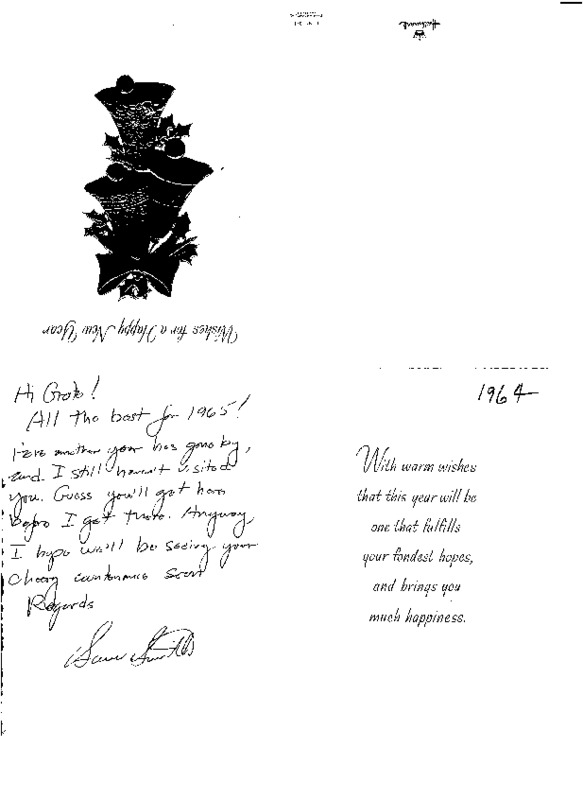 Hallmark
Wishes for a Happy New Year
Hi Grote!
All the best for 1965!
Here another year has gone by,
and I still haven't visited
you. Guess you'll get here
before I get there. Anyway,
I hope we'll be seeing your
cheery countenance soon
Regards
1964
With warm wishes
that this year will be
one that fulfills
your fondest hopes,
and brings you
much happiness.